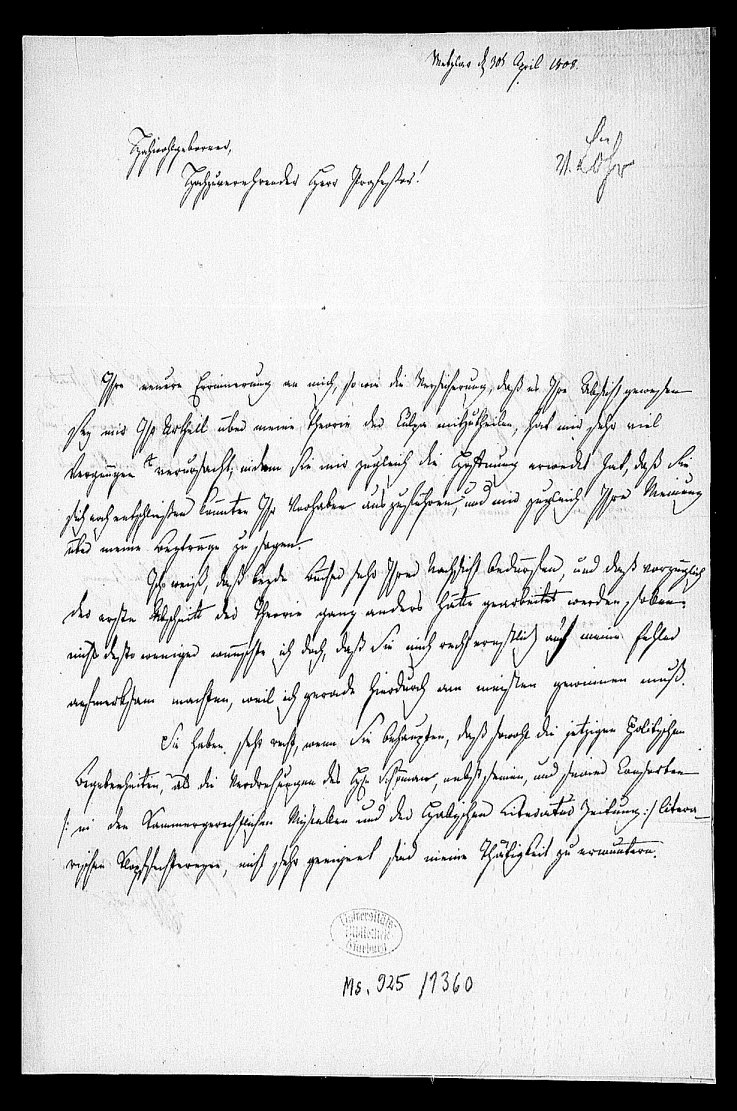 Wetzlar d 30t April 1808.
Hochwohlgeborner,
Hochzuverehrender Herr Professor!
v. Löhr
Ihre neuere Erinnerung an mich, so wie die Versicherung, daß es Ihre Absicht gewesen
sey mir Ihr Urtheil über meine Theorie der Culpa mitzutheilen, hat mir sehr viel
Vergnügen verursacht, indem sie mir zugleich die Hoffnung erweckt hat, daß Sie
sich noch entschließen könnten Ihr Vorhaben auszuführen, und mir zugleich Ihre Meinung
über meine Beyträge zu sagen.
Ich weiß, daß beide Bücher sehr Ihrer Nachsicht bedürfen, und daß vorzüglich
der erste Abschnitt der Theorie ganz anders hätte gearbeitet werden sollen;
nichts desto weniger wünschte ich doch, daß Sie mich recht ernstlich auf meine Fehler
aufmerksam machten, weil ich gerade hierdurch am meisten gewinnen muß.
Sie haben sehr recht, wenn Sie behaupten, daß sowohl die jetzigen Politischen
Begebenheiten, als die Verdrehungen des nebst seinen, und seiner Consorten
/: in den Kammergerichtlichen und der Hallischen Literatur Zeitung :/ litera-
rischen Klopffechtereyen, nicht sehr geeignet sind meine Thätigkeit zu ermuntern.
Universitäts-
Bibliothek
Marburg
Ms. 925/1360